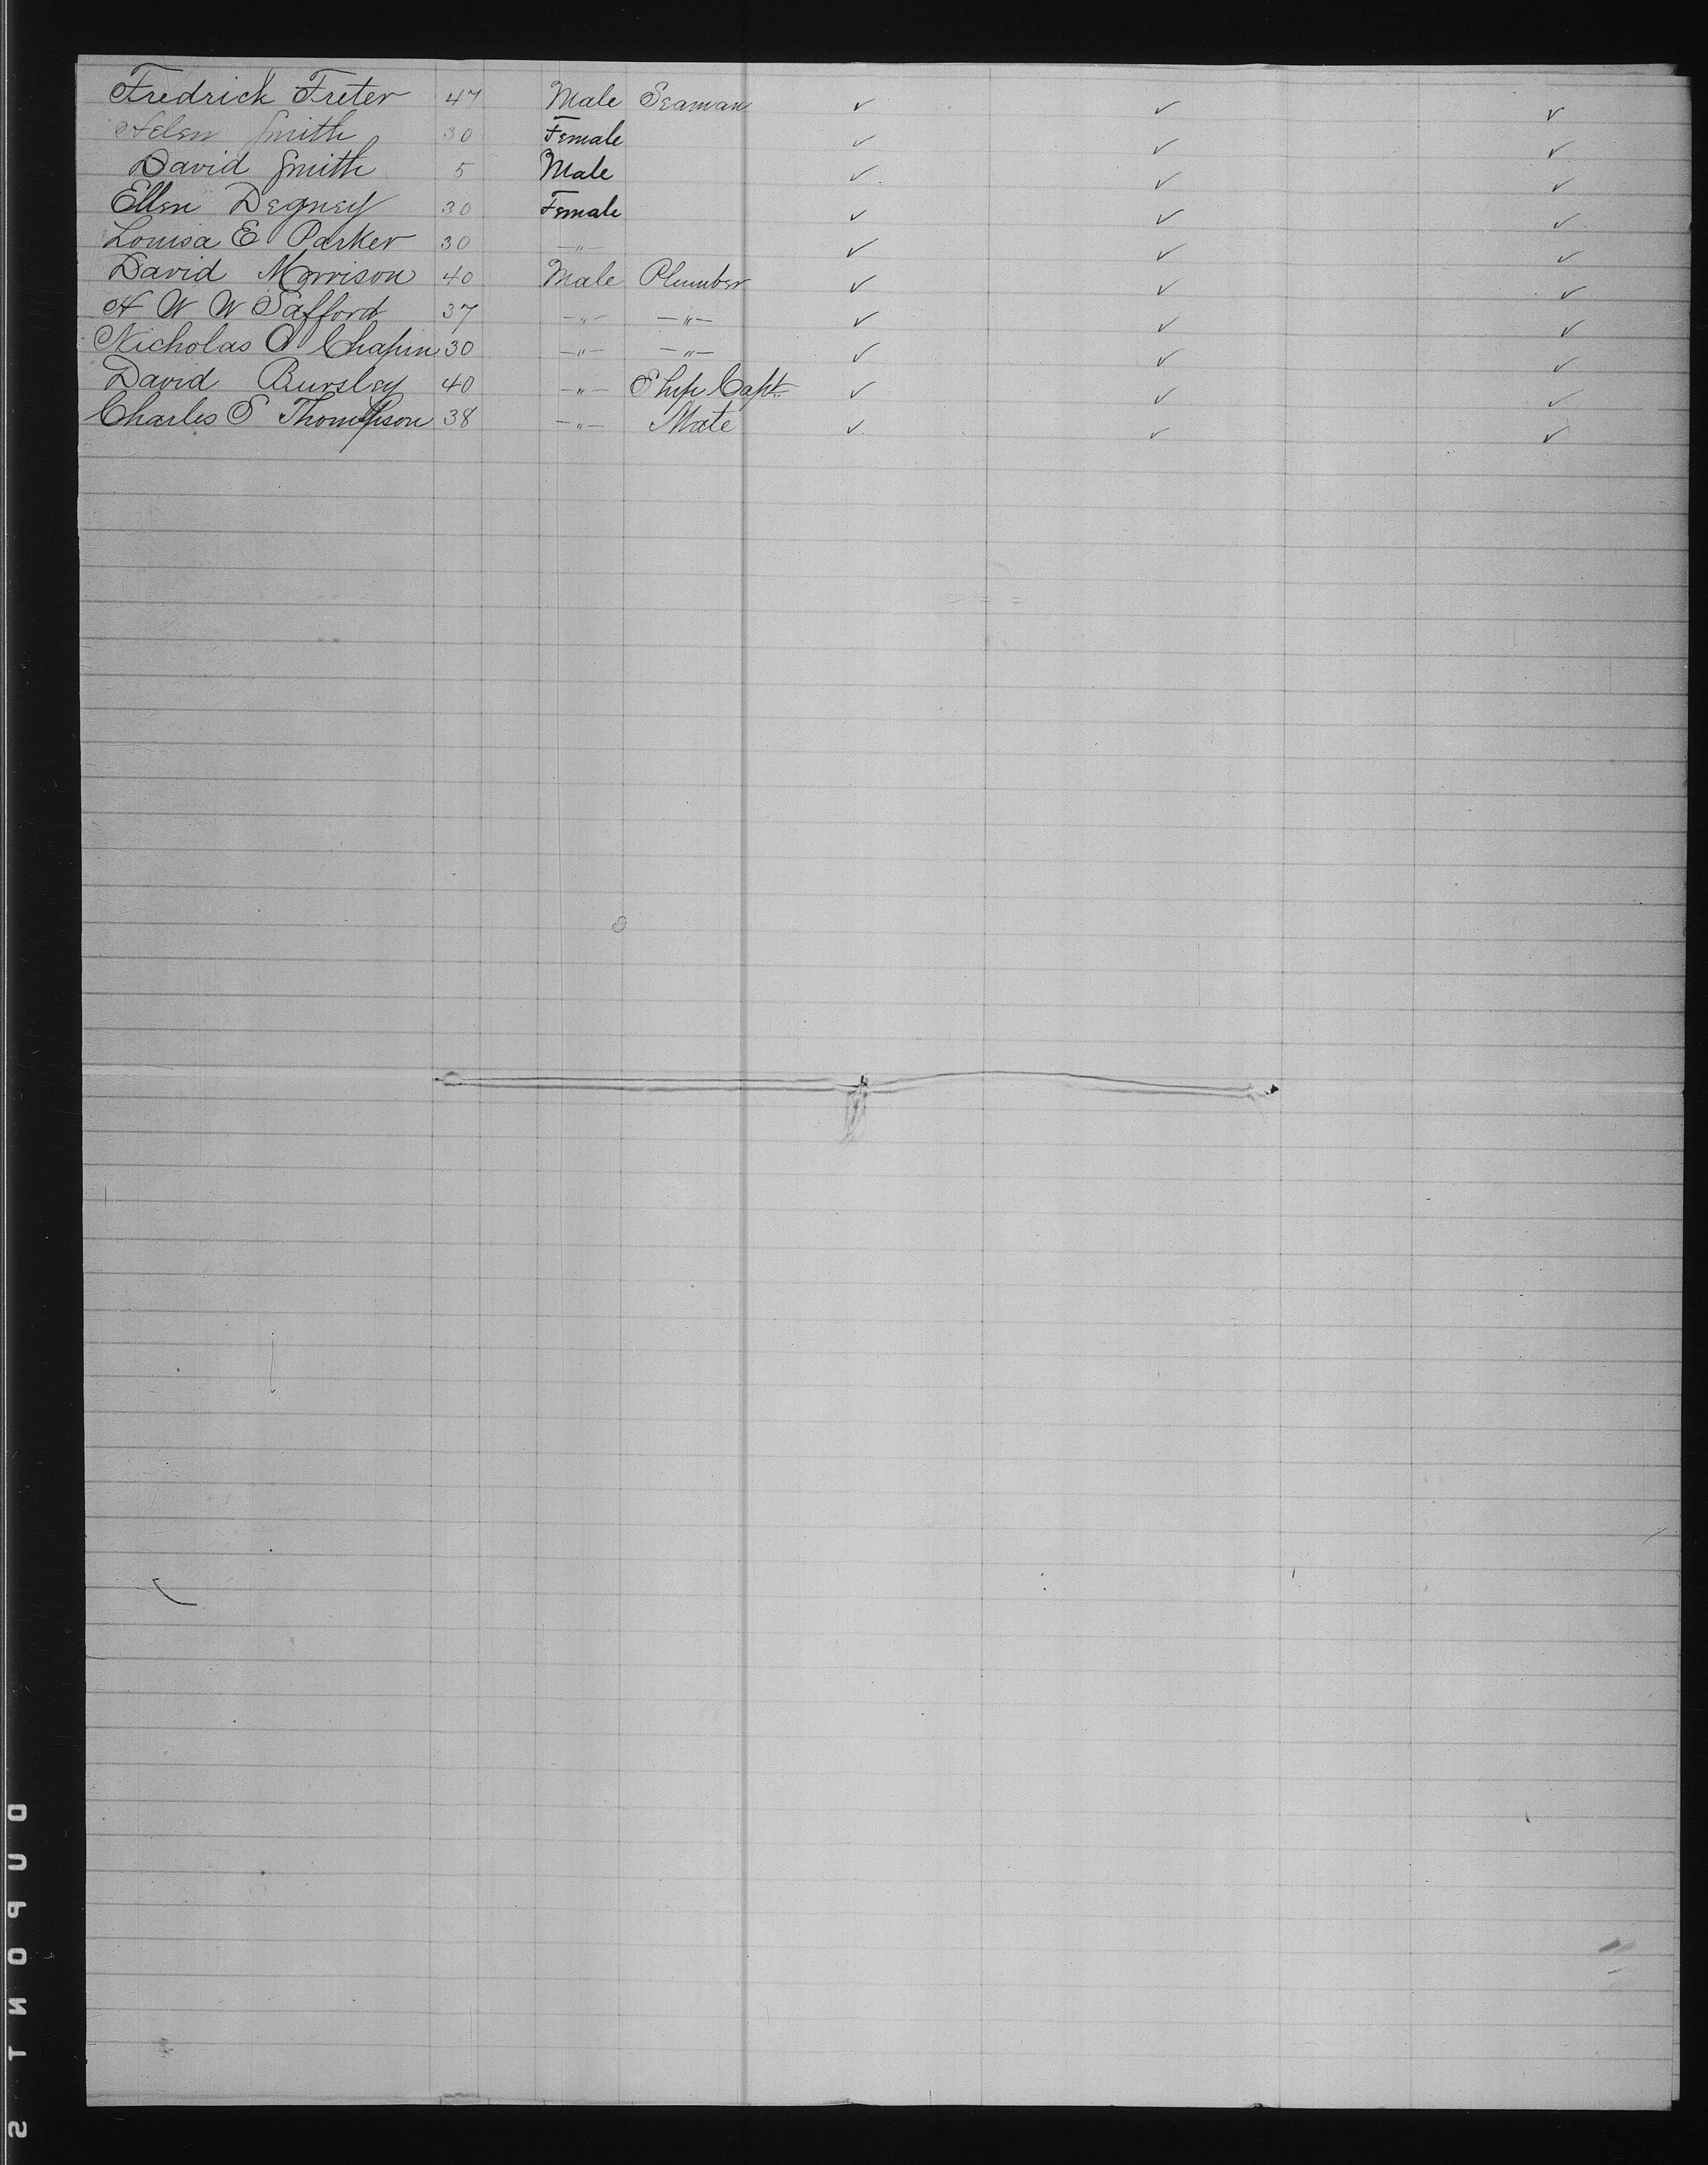 Fredrick Freter 47 Male Seaman ✓ ✓ ✓
Helen Smith 30 Female ✓ ✓ ✓
David Smith 5 Male ✓ ✓ ✓
Ellen Degney 30 Female ✓ ✓ ✓
Louisa E Parker 30 —"— ✓ ✓ ✓
David Morrison 40 Male Plumber ✓ ✓ ✓
H W W Safford 37 —"— —"— ✓ ✓ ✓
Nicholas O Chapin 30 —"— —"— ✓ ✓ ✓
David Bursley 40 —"— Ship Capt. ✓ ✓ ✓
Charles S Thompson 38 —"— Mate ✓ ✓ ✓
DUPONT S